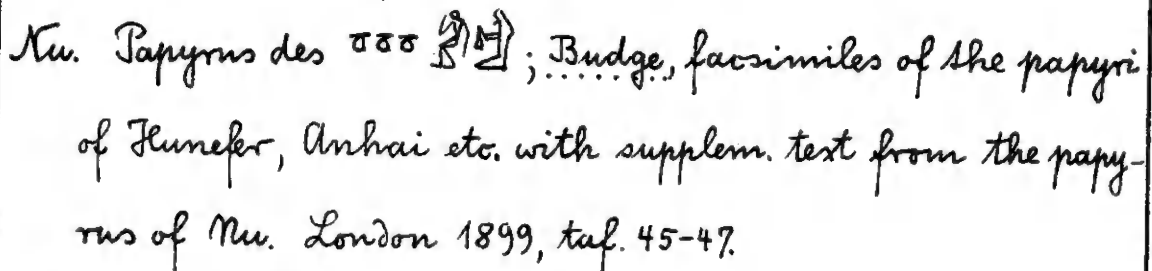 Nu. Papyrus des 𓏌𓏌𓏌 ; Budge, facsimiles of the papyri
of Hunefer, Anhai etc. with supplem. text from the papy-
rus of Nu. London 1899, taf. 45-47.